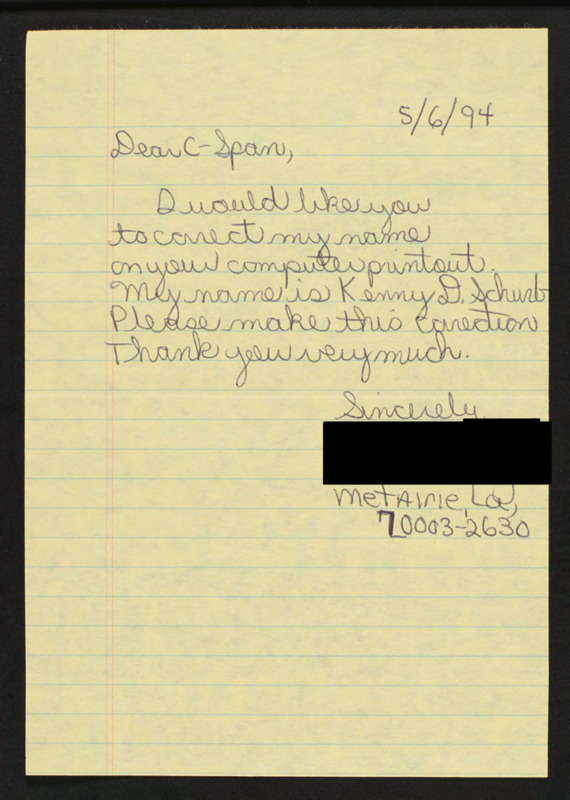 5/6/94
Dear C-Span,
I would like you
to corect my name
on your computer printout.
My name is Kenny D. Schurb
Please make this corection
Thank you very much.
Sincerely
Metairie, La,
70003-2630